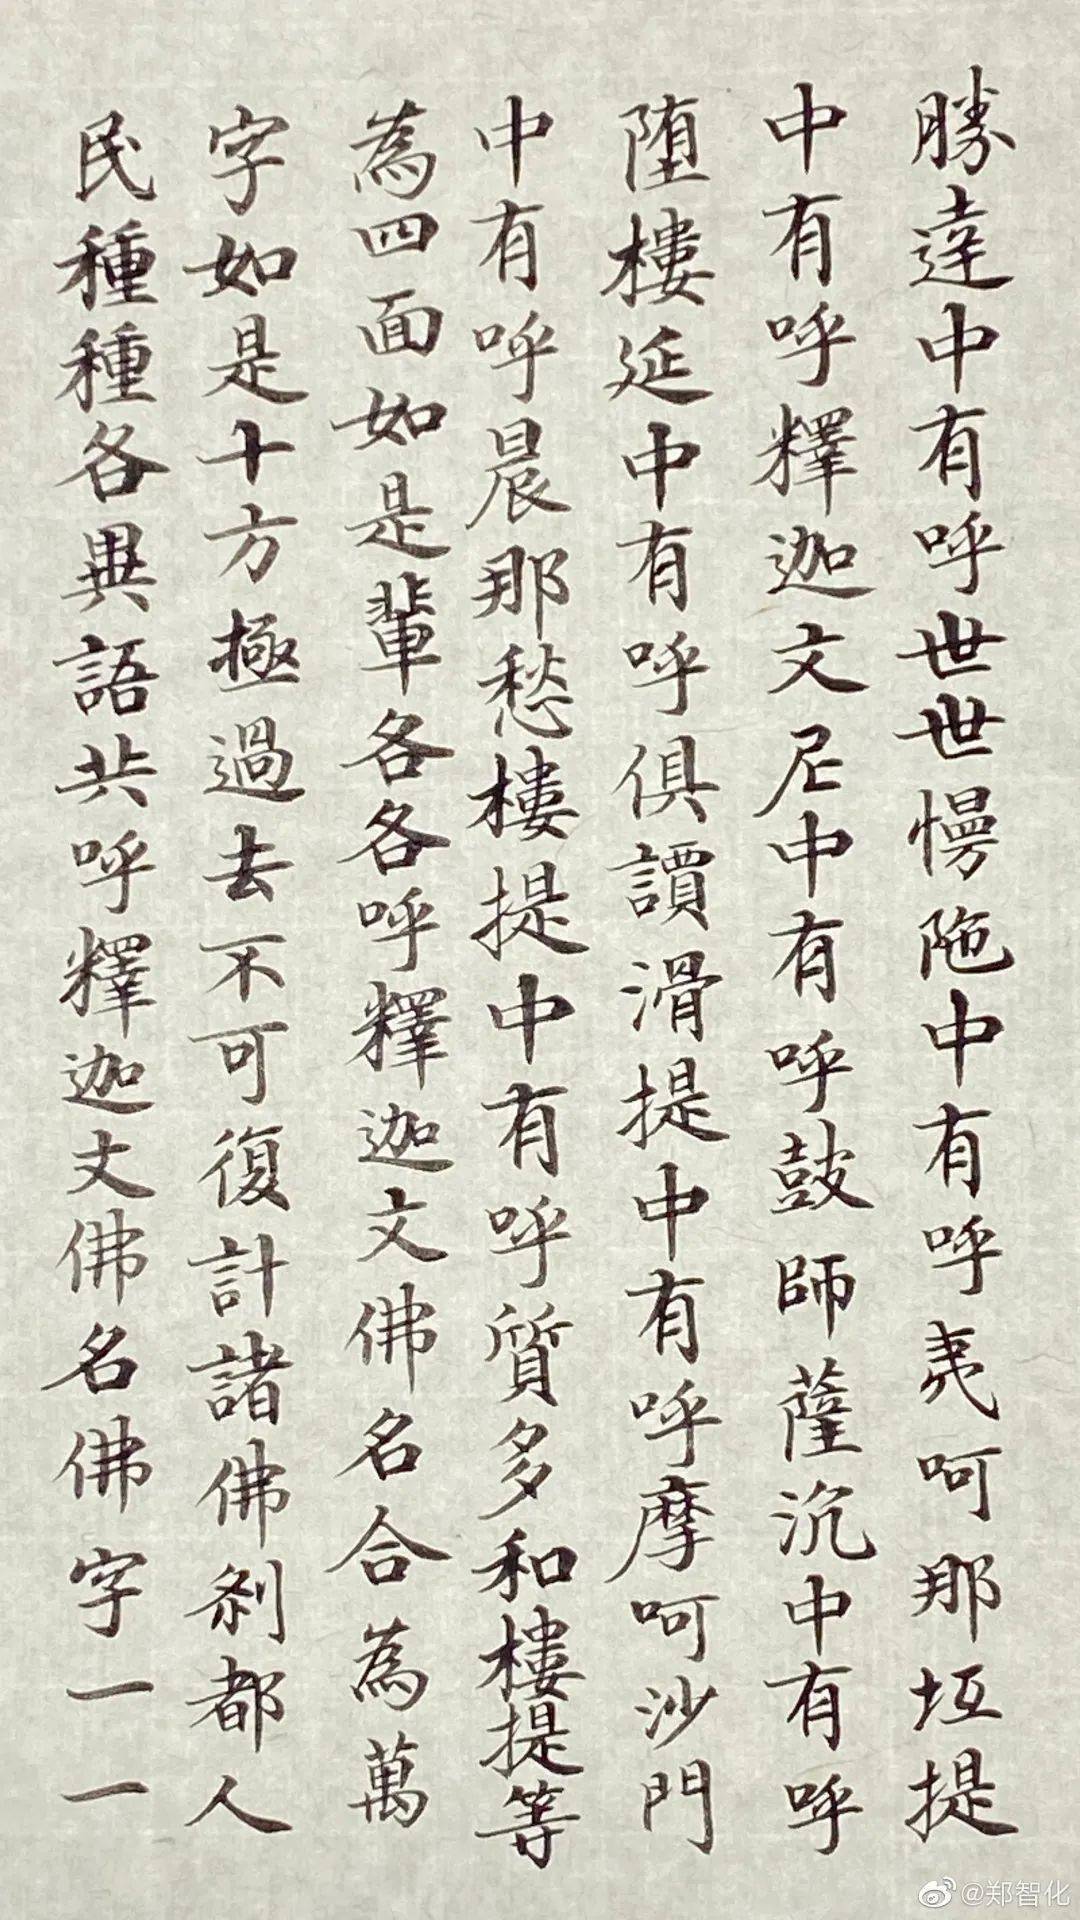 勝達中有呼世世慢陁中有呼夷呵那坘提
中有呼釋迦文尼中有呼鼓師薩沉中有呼
墮樓延中有呼俱譚滑提中有呼摩呵沙門
中有呼晨那愁樓提中有呼質多和樓提等
為四面如是輩各各呼釋迦文佛名合為萬
字如是十方極過去不可復計諸佛剎都人
民種種各異語共呼釋迦文佛名佛字一一
@郑智化